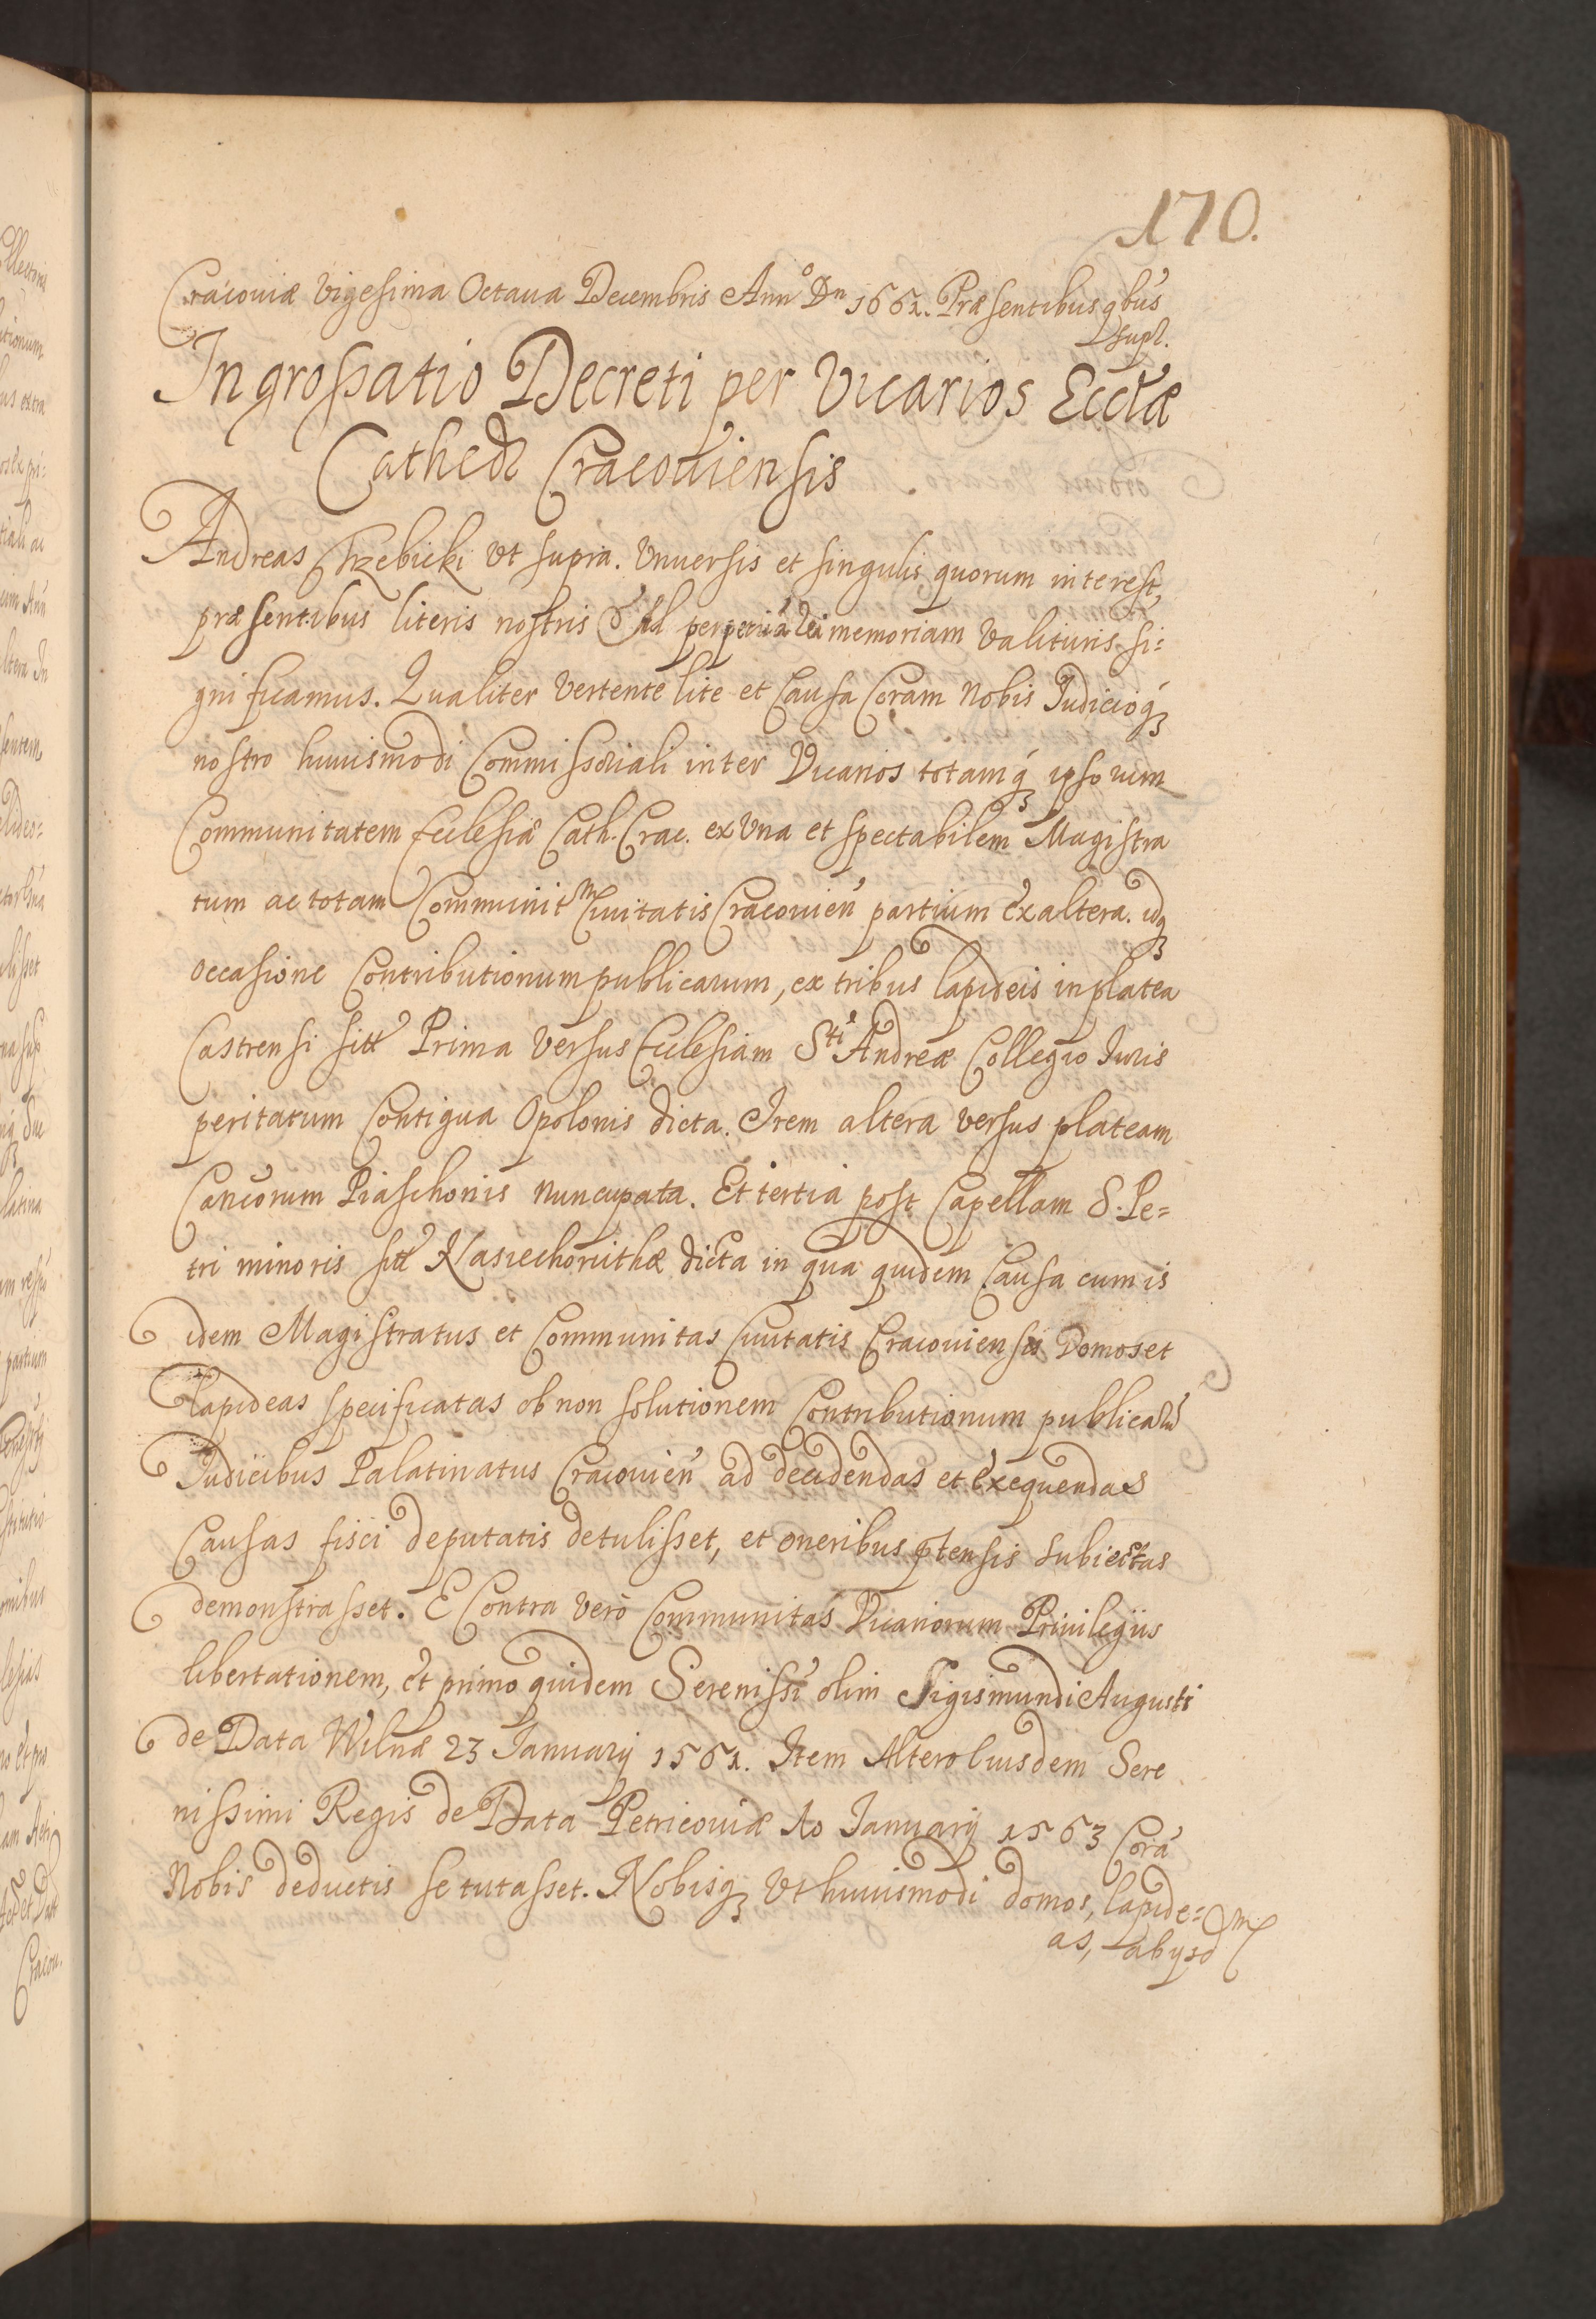 170.
Cracouiæ Vigesima Octaua Decembris Ann° Dn 1661. Præsentibus qbus
supl.
Ingrossatio Decreti per Vicarios Ecclæ
Cathed Cracouiensis
Andreas Trzebicki Vt supra. Vniuersis et singulis quorum interest,
præsentibus literis nostris Ad rei memoriam Valituris si=
gnificamus. Qualiter Vertente lite et Causa Coram Nobis Iudicioq3
nostro huiusmodi Commissoriali inter Vicarios totamq3 ipsorum
Communitatem Ecclesiæ Cath. Crac. ex Vna et spectabilem Magistra
tum ac totam Communitm Ciuitatis Cracouien partium ex altera. idq3
occasione Contributionum publicarum, ex tribus lapideis in platea
Castrensi sitt Prima Versus Ecclesiam Sti Andreæ Collegio Iuris
peritatum Contigua Opolonis dicta. Item altera versus plateam
Canicorum Piaschonis nuncupata. Et tertia post Capellam S. Pe=
tri minoris sitt Nasiechowithæ dicta in qua quidem Causa cum is
idem Magistratus et Communitas Ciuitatis Cracouiensis Domos et
lapideas specificatas ob non solutionem Contributionum publicarũ
Iudicibus Palatinatus Cracouien ad decidendas et exequendas
Causas fisci deputatis detulisset, et oneribus ptensis subiectas
demonstrasset. E Contra Vero Communitas Vicariorum Priuilegiis
libertationem, et primo quidem Serenissi olim Sigismundi Augusti
de Data Wilnæ 23 Ianuarij 1561. Item Altero Eiusdem Sere
nissimi Regis de Data Petricouiæ Ao Ianuarij 1563 Corã
Nobis deductis se tutasset. Nobisq3 Vt huiusmodi domos, lapide=
as,